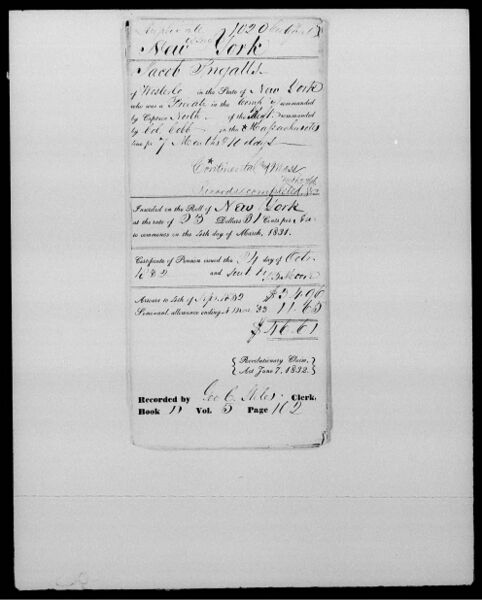 New York
Jacob Ingalls
of Westerlo in the State of New York
who was a Private in the Comp'y commanded
by Captain North of the Regt. commanded
by Col. Cobb in the Massachusetts
line for 7 Months 10 days
Continental & Mass
records completed
Inscribed on the Roll of New York
at the rate of 23 Dollars 31 Cents per An.
to commence on the 4th day of March, 1831.
Certificate of Pension issued the 24 day of Octo.
1832 and sent
Arrears to 4th of Sept. 1832 $34.96
Semi-anl. allowance ending 4 Mar. 33 11.65
$46.61
Revolutionary Claim,
Act June 7, 1832.
Recorded by Clerk.
Book D Vol. 5 Page 102